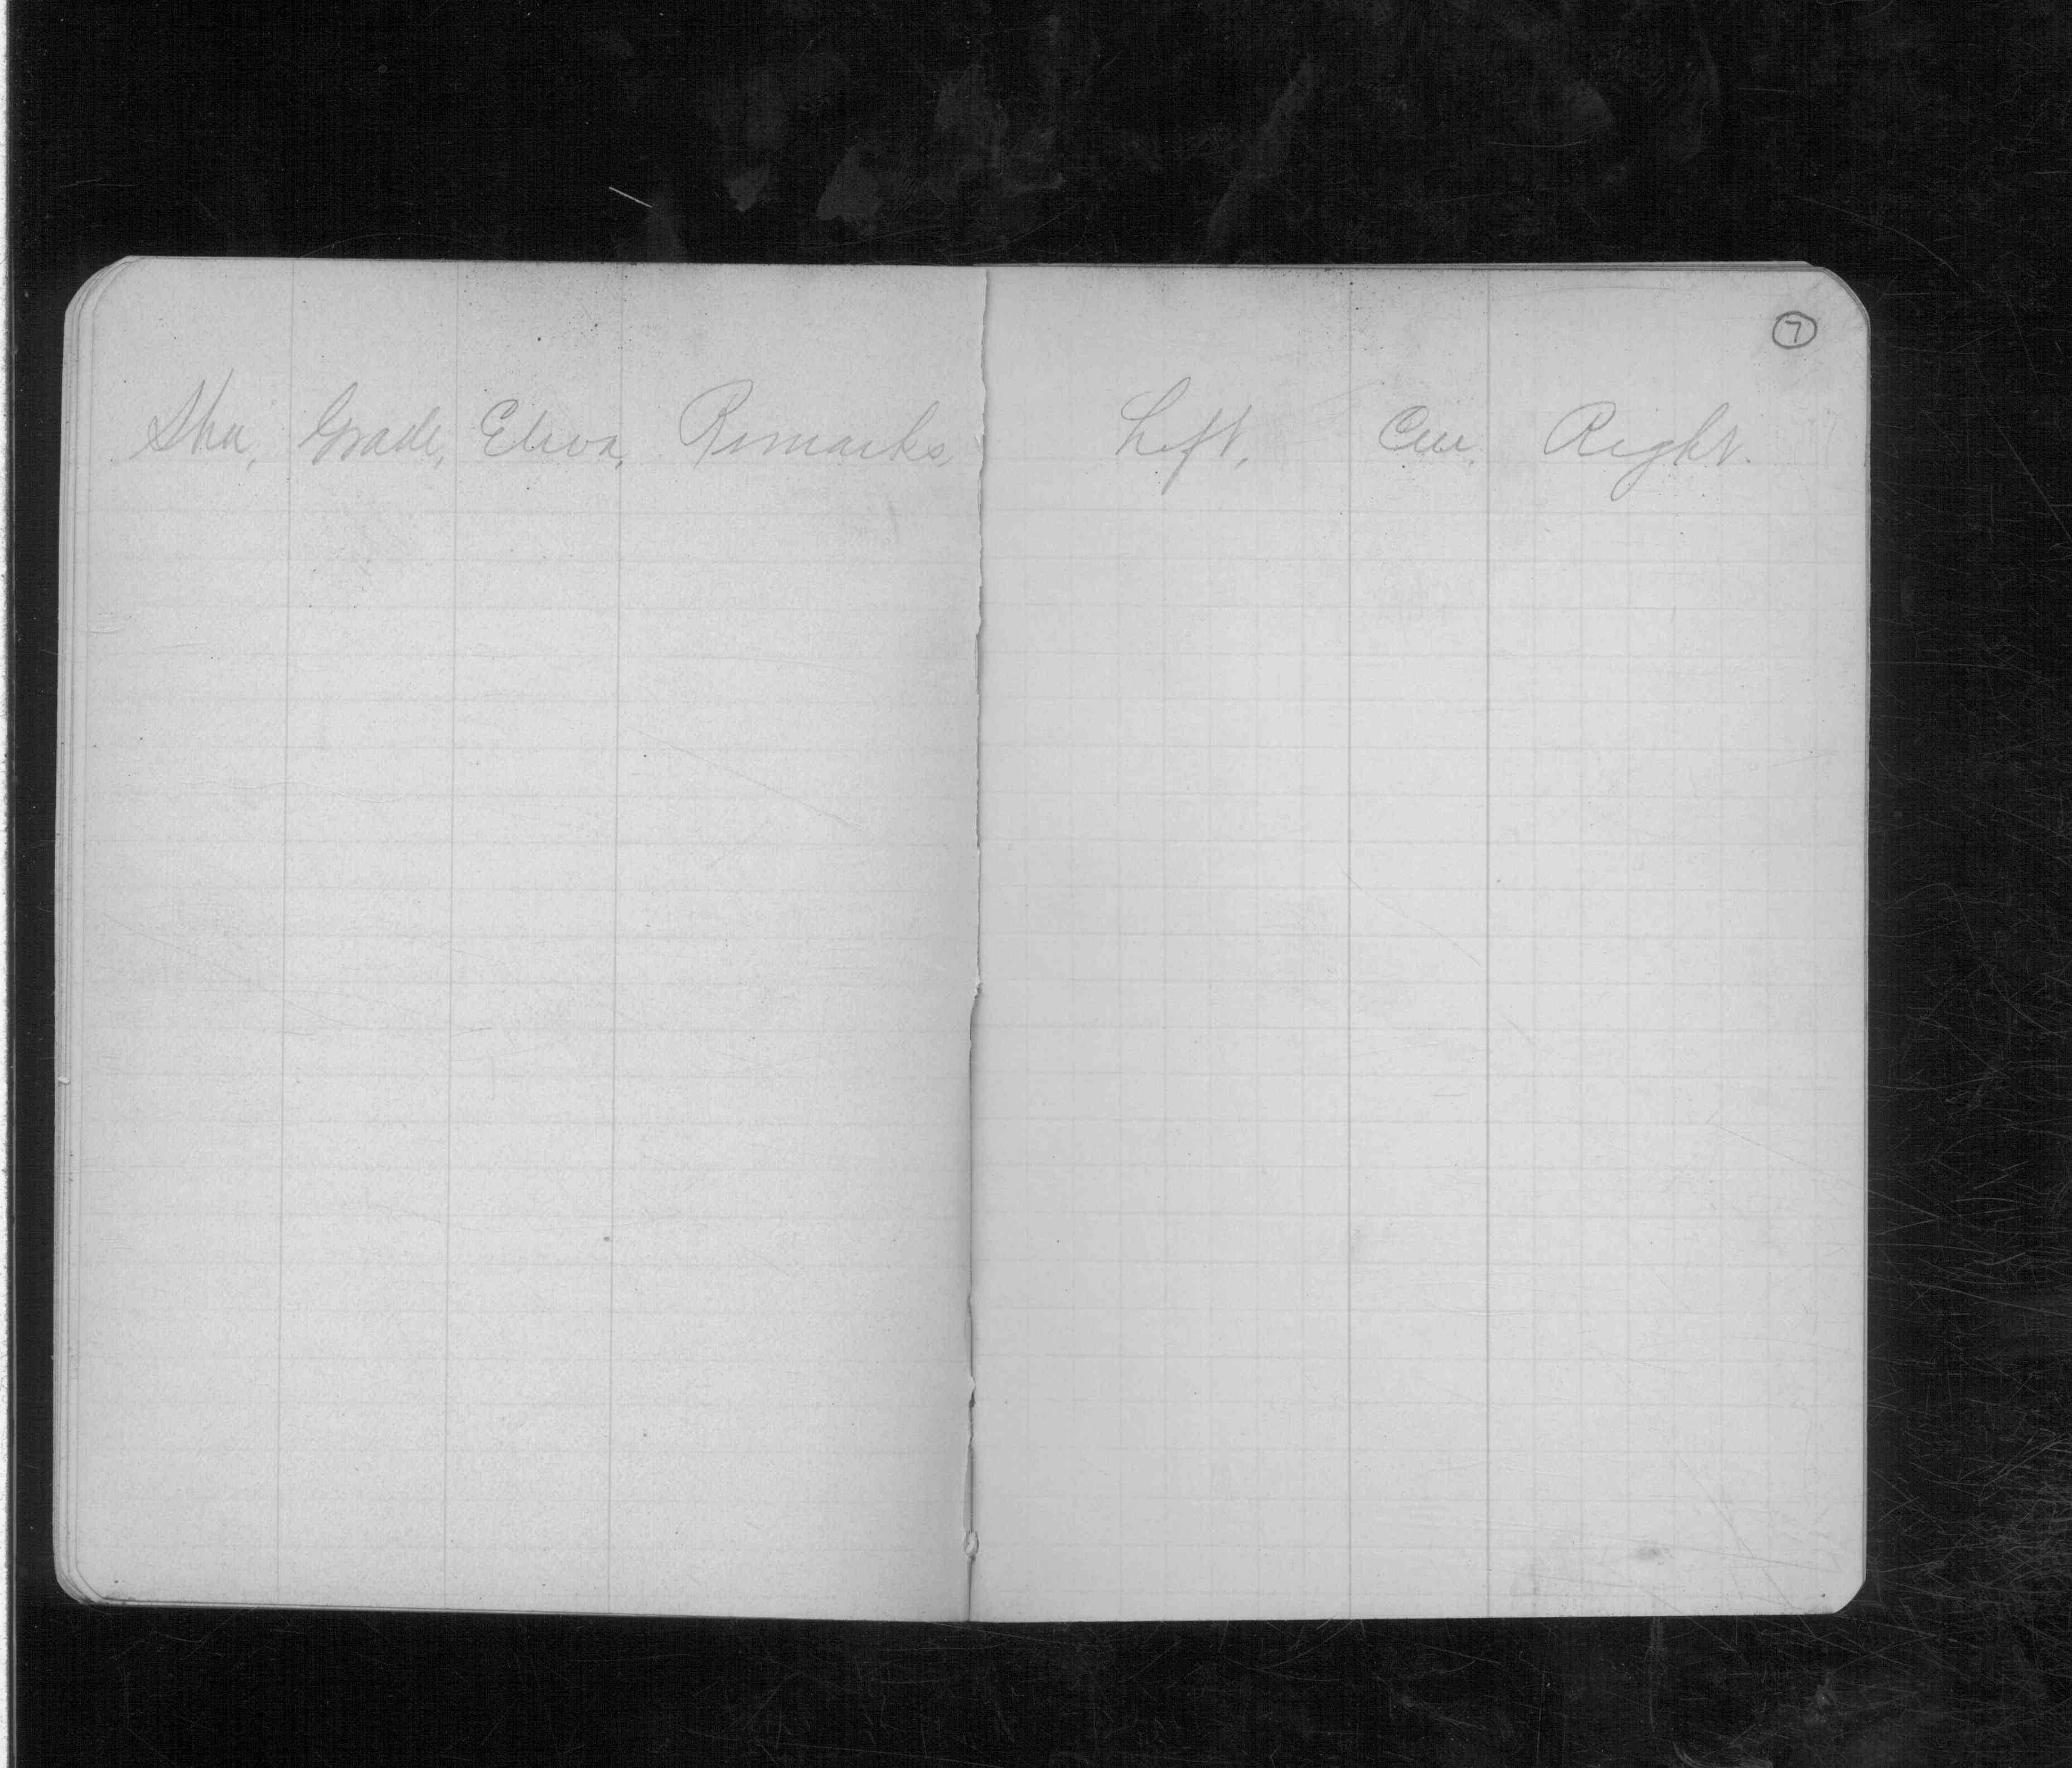 7
Sta. Grade. Eleva. Remarks.
Left. Cen. Right.